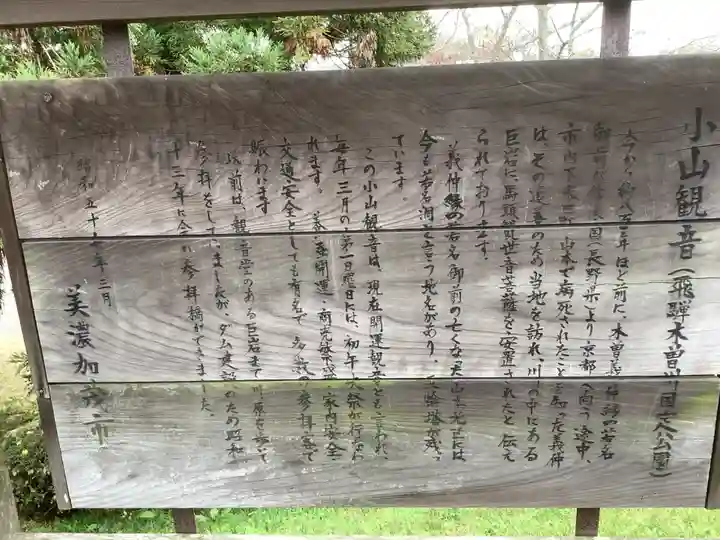 小山観音(飛騨木曽川国定公園)
今から約八百年ほど前に、木曽義仲の母若名
御前が信濃国(長野県)より京都へ向う途中、
市内で病死されたことを知った義仲
は、その追善のため当地を訪れ、川の中にある
巨岩に馬頭観世音菩薩を安置されたと伝え
られております。
義仲縁の若名御前の亡くなった山本光には
今も若名洞と言う地名があり、五輪塔が残っ
ています。
この小山観音は、現在開運観音とも言われ、
毎年三月の第一日曜日には、初午大祭が行なわ
れます。養蚕、開運、商売繁盛、家内安全、
交通安全としても有名で、多数の参拝客で
賑わいます
以前は、観音堂のある巨岩まで川原を歩いて
参拝をしていましたが、ダム建設のため昭和
十三年に今の参拝橋ができました。
昭和五十 年三月
美濃加茂市